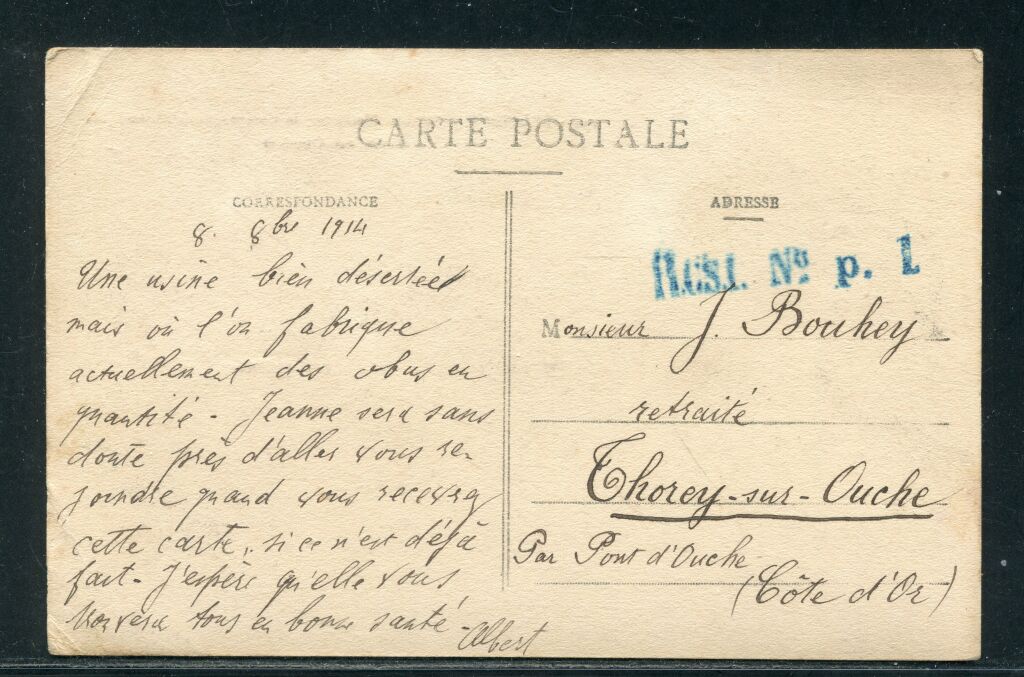 CARTE POSTALE
CORRESPONDANCE
8. 8bre 1914
Une usine bien désertée
mais où l'on fabrique
actuellement des obus en
quantité - Jeanne sera sans
doute près d'aller vous re-
joindre quand vous recevrez
cette carte, si ce n'est déjà
fait - J'espère qu'elle vous
trouvera tous en bonne santé -
Albert
ADRESSE
No p. 1
Monsieur J. Bouhey
retraité
Thorey-sur-Ouche
Par Pont d'Ouche
(Côte d'Or)